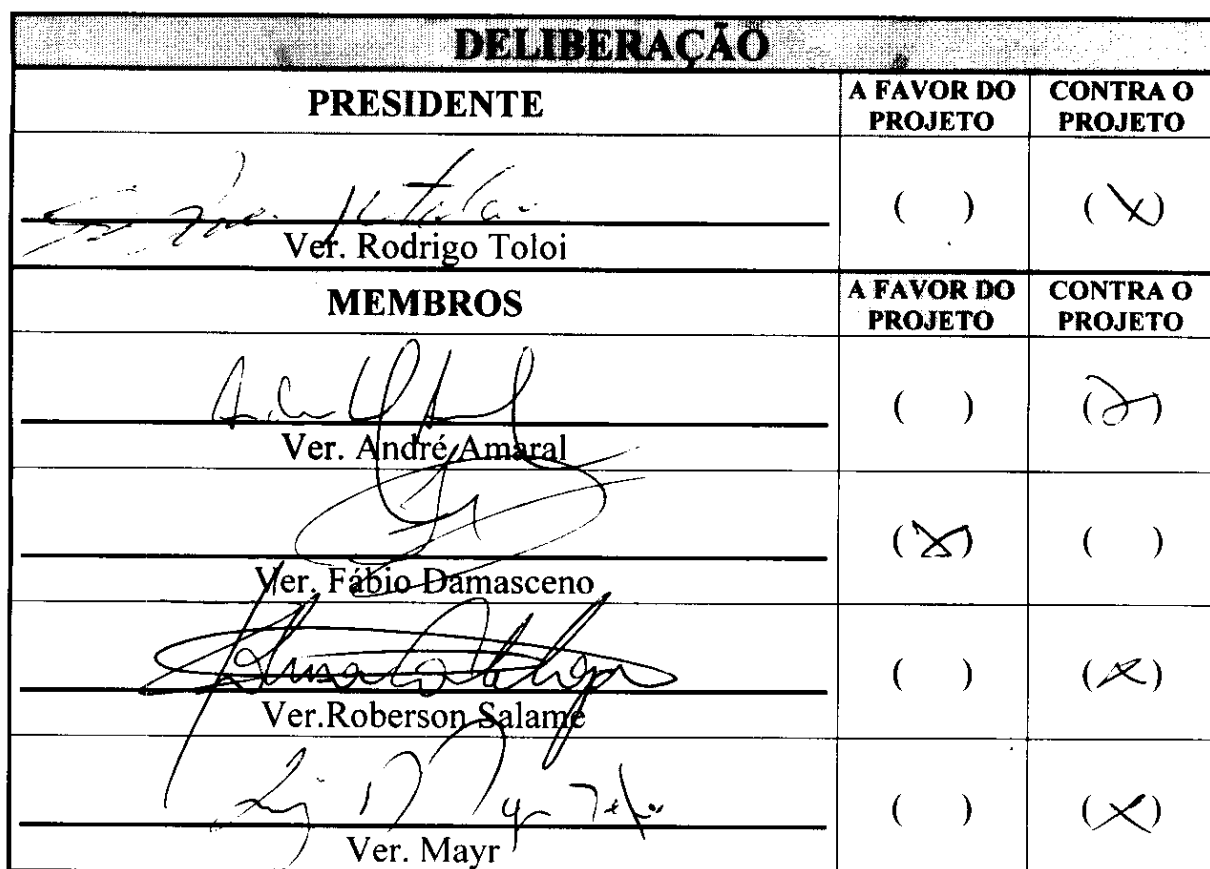 DELIBERAÇÃO
PRESIDENTE A FAVOR DO PROJETO CONTRA O PROJETO
( ) (X)
Ver. Rodrigo Toloi
MEMBROS A FAVOR DO PROJETO CONTRA O PROJETO
( ) (X)
Ver. André Amaral
(X) ( )
Ver. Fábio Damasceno
( ) (X)
Ver.Roberson Salame
( ) (X)
Ver. Mayr